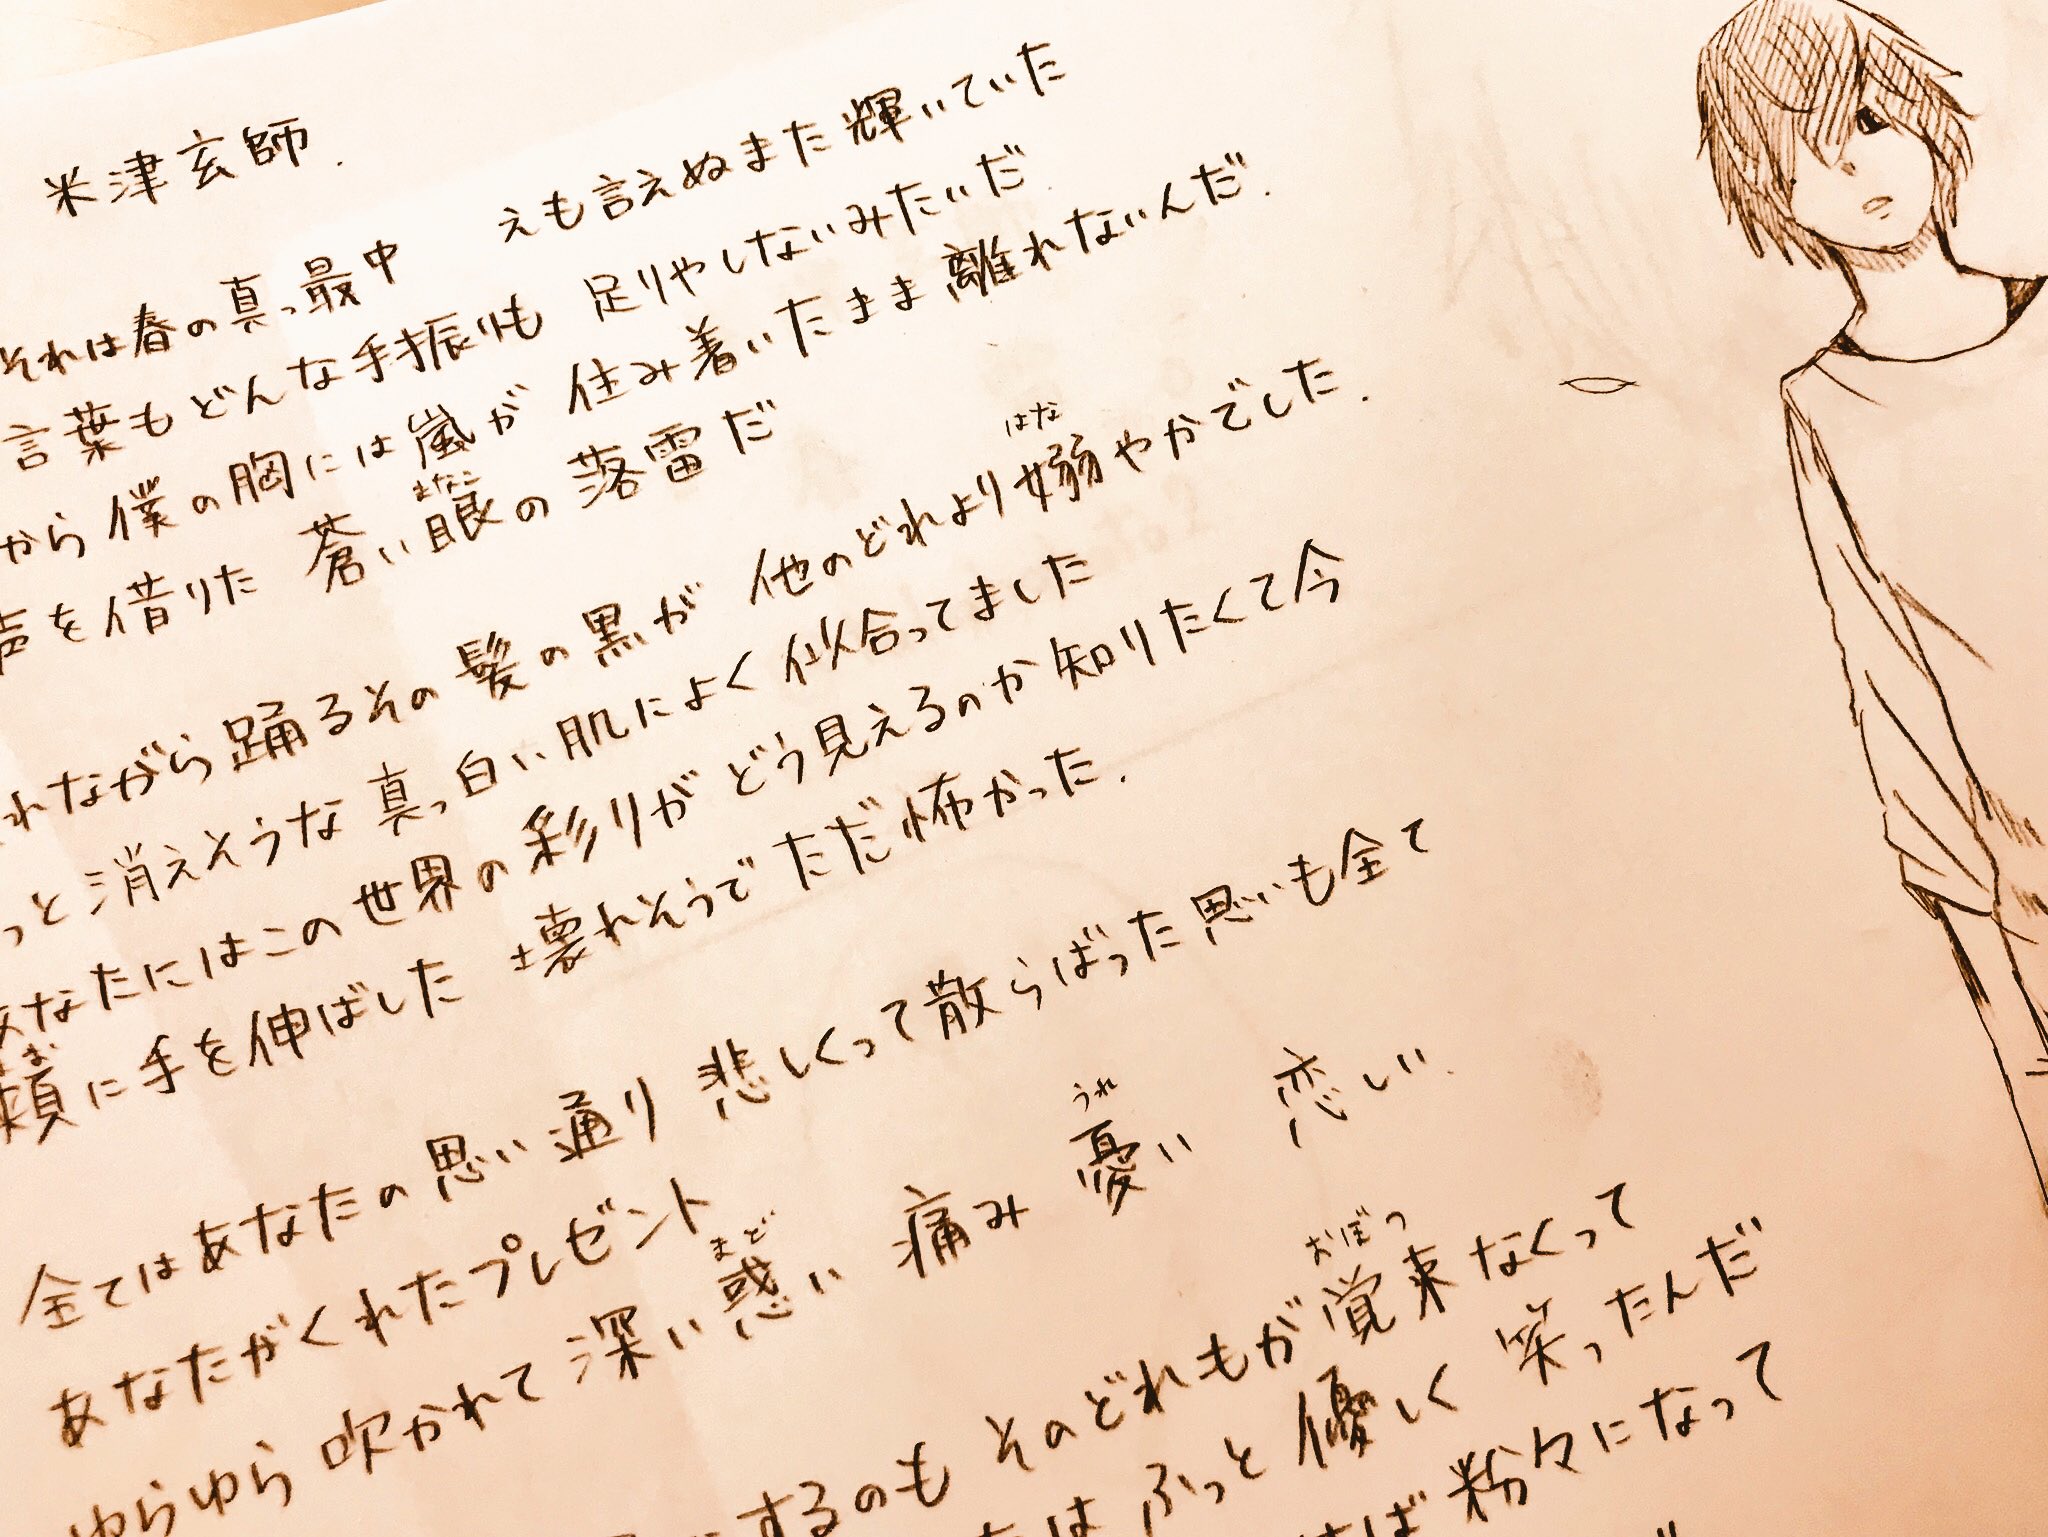 米津玄師.
それは春の真っ最中 えも言えぬまた輝いていた
言葉もどんな手振りも 足りやしないみたいだ
から僕の胸には嵐が 住み着いたまま離れないんだ.
声を借りた 蒼い眼の落雷だ
まなこ
れながら踊るその髪の黒が 他のどれより嫋やかでした.
はな
っと消えそうな真っ白い肌によく似合ってました
あなたにはこの世界の彩りが どう見えるのか知りたくて今
頬に手を伸ばした 壊れそうでただ怖かった.
ほお
全てはあなたの思い通り 悲しくって散らばった思いも全て
あなたがくれたプレゼント
ゆらゆら吹かれて深い惑い 痛み 憂い 恋しい.
まど
うれ
するのも そのどれもが覚束なくって
おぼつ
はふっと優しく笑ったんだ
ば粉々になって